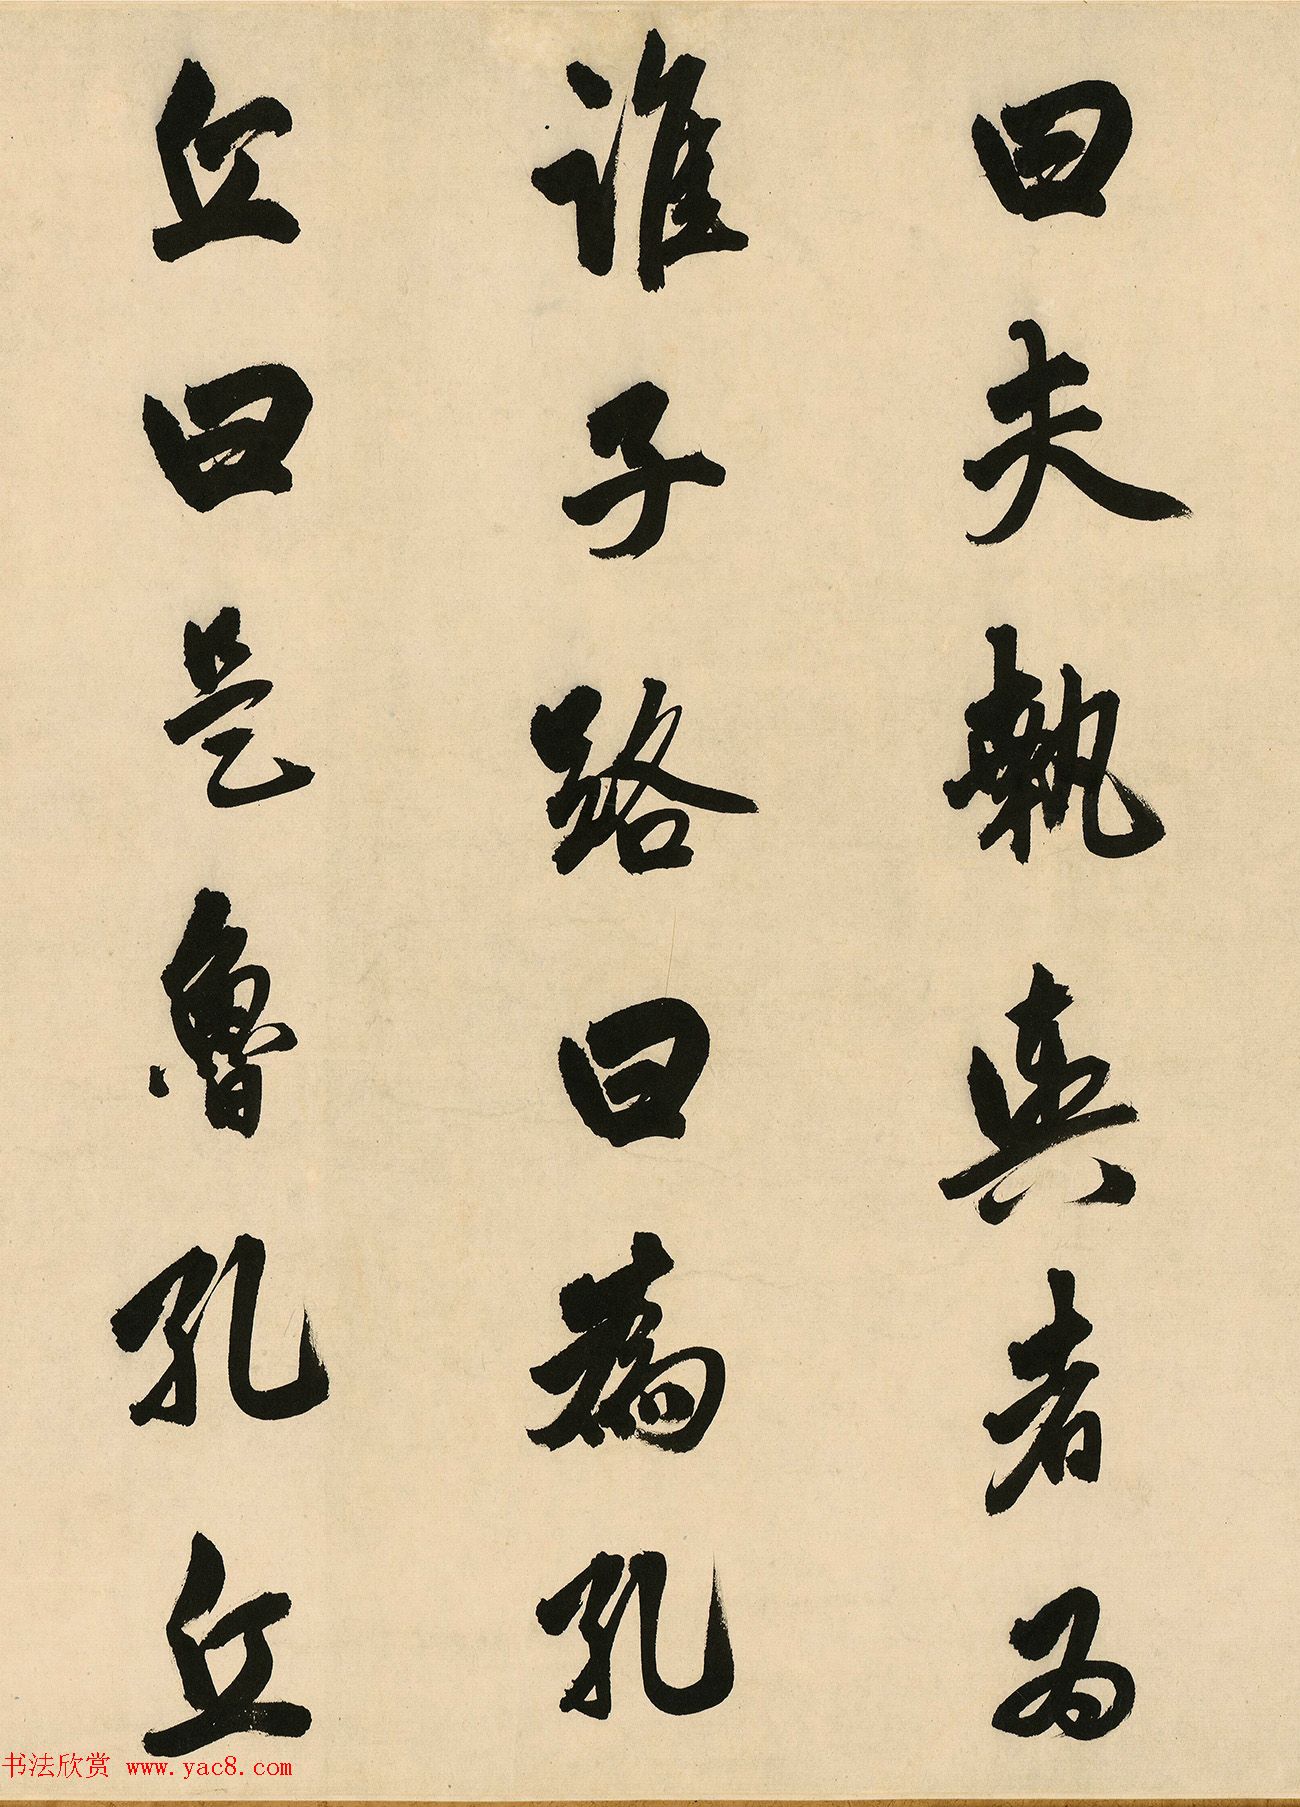 曰夫執輿者為
誰子路曰為孔
丘曰是魯孔丘
书法欣赏 www.yac8.com